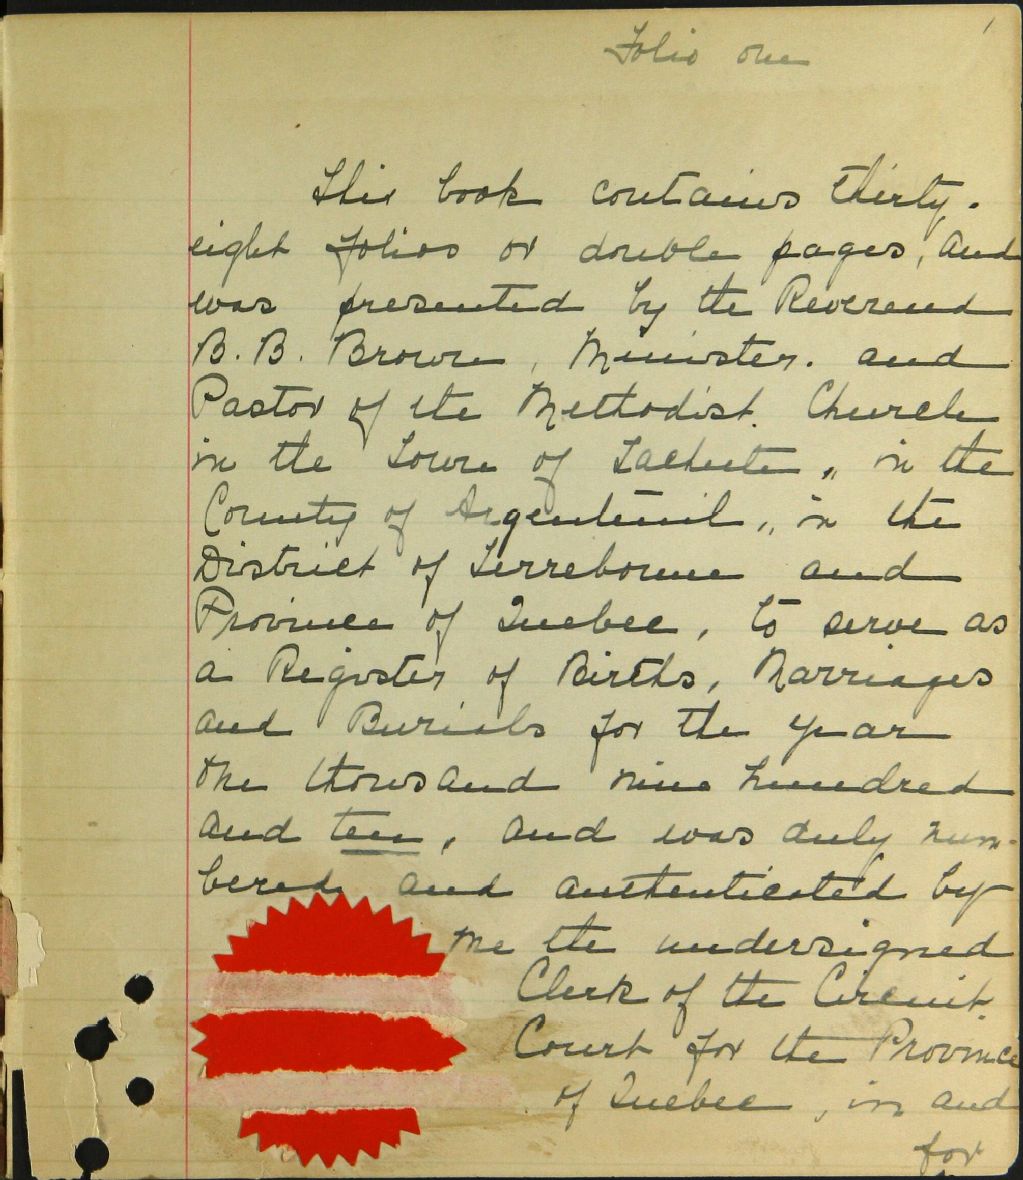 1
Folio one
This book contains thirty-
eight folios or double pages, and
was presented by the Reverend
B. B. Brown, Minister. and
Pastor of the Methodist. Church
in the Town of Lachute,, in the
County of Argenteuil,, in the
District of Terrebonne and
Province of Quebec, to serve as
a Register of Births, Marriages
and Burials for the year
One thousand nine hundred
and ten, and was duly num-
bered, and authenticated by
me the undersigned
Clerk of the Circuit.
Court for the Province
of Quebec, in and
for